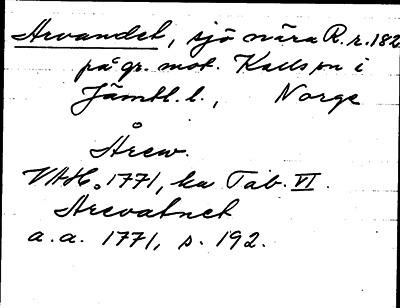 Arvandet, sjö nära R.r. 182
på gr. mot. Kalls sn i
Jämtl. l., Norge
Årew.
VAH. 1771, ka Tab. VI
Arevatnet
a.a. 1771, s. 192.